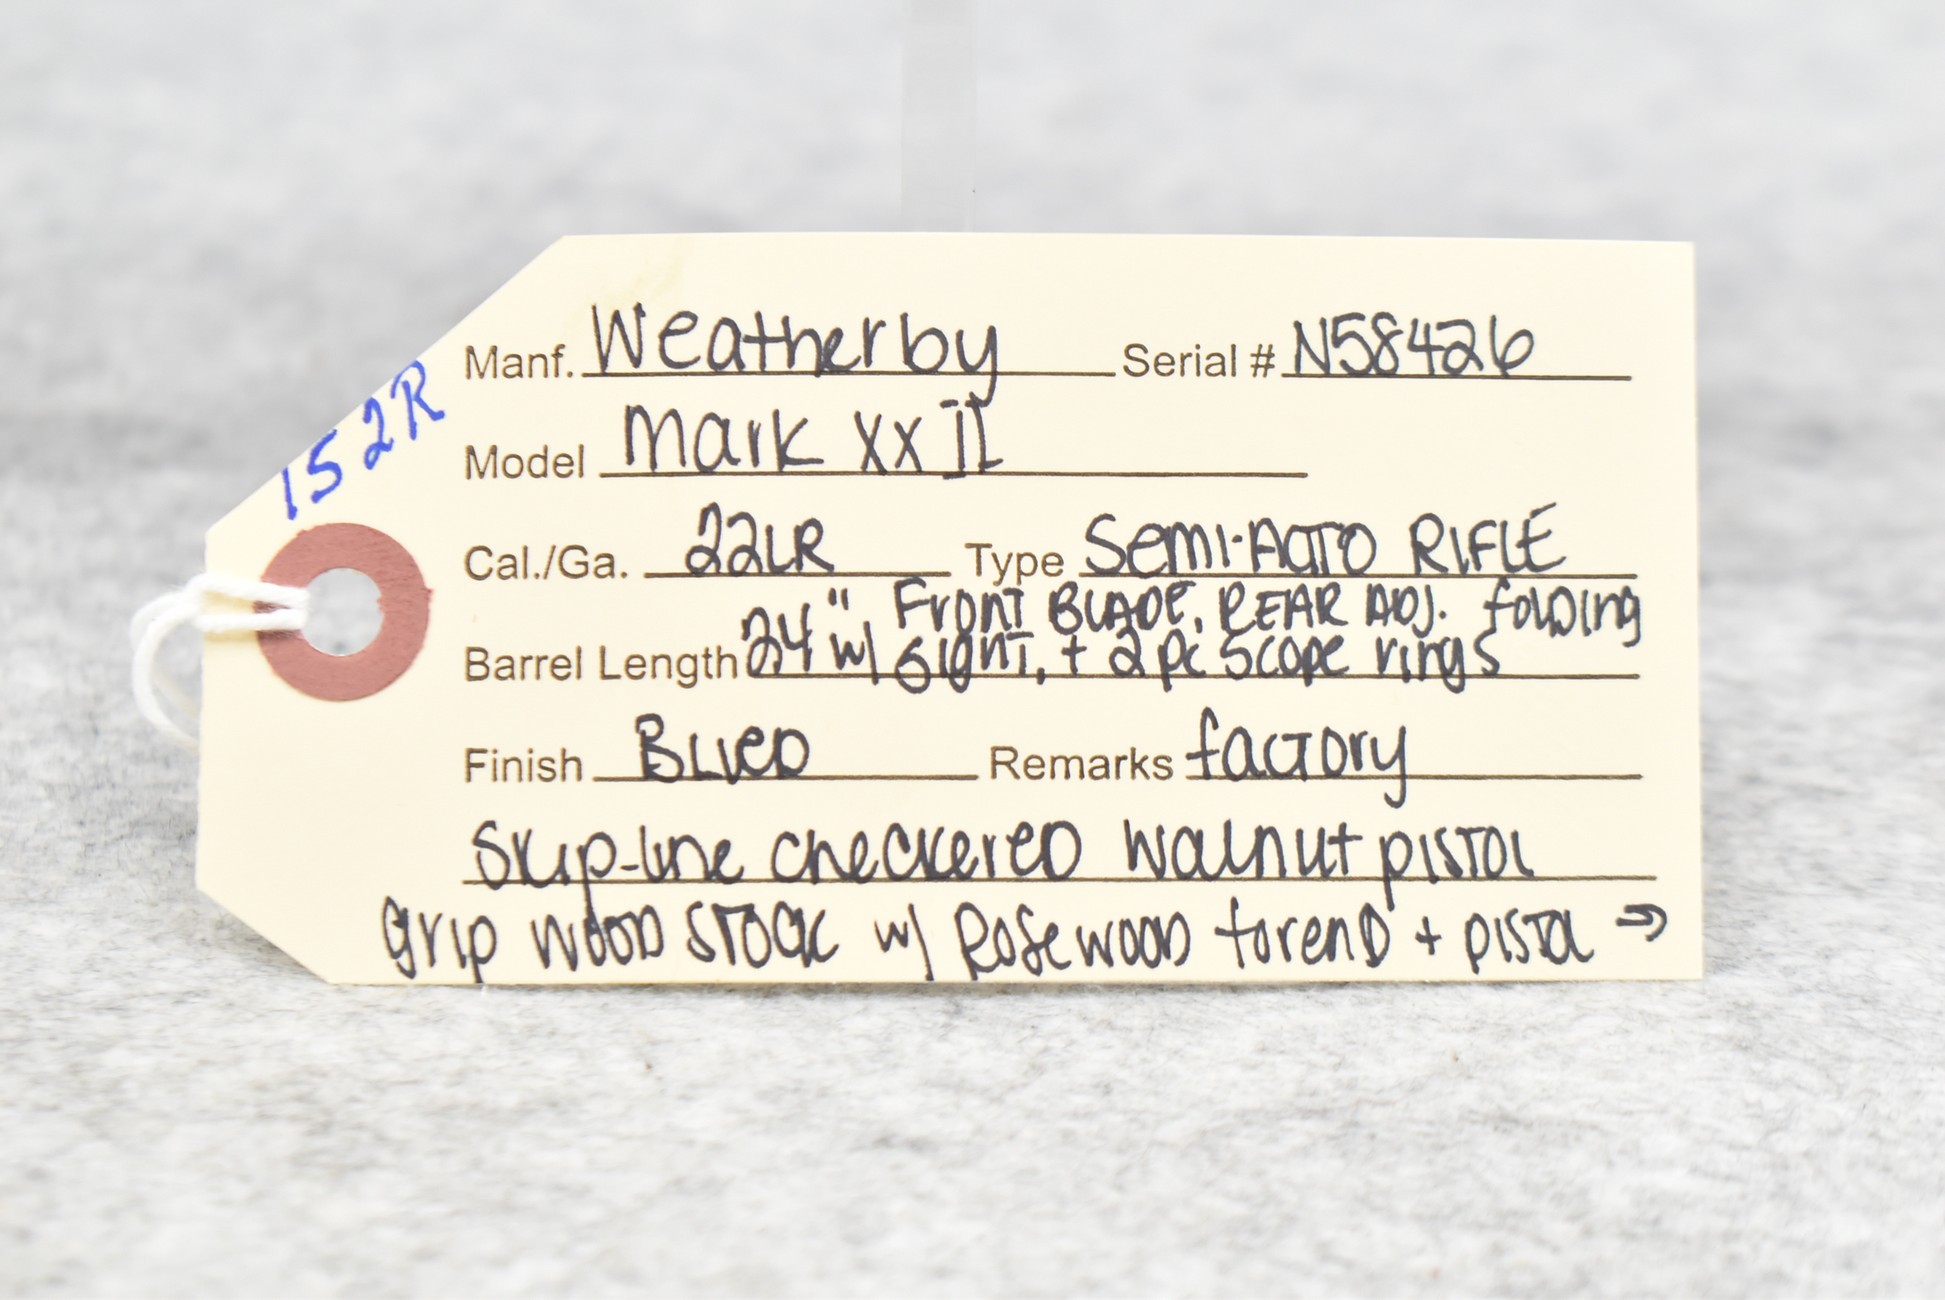 152R
Manf. Weatherby Serial # N58426
Model Mark XX II
Cal./Ga. 22LR Type Semi-Auto RIFLE
Front BLADE, REAR ADJ. folding
Barrel Length 24" w/ sight, + 2 pc scope rings
Finish BLUED Remarks factory
Skip-line checkered walnut pistol
grip wood stock w/ Rosewood forend + pistol →